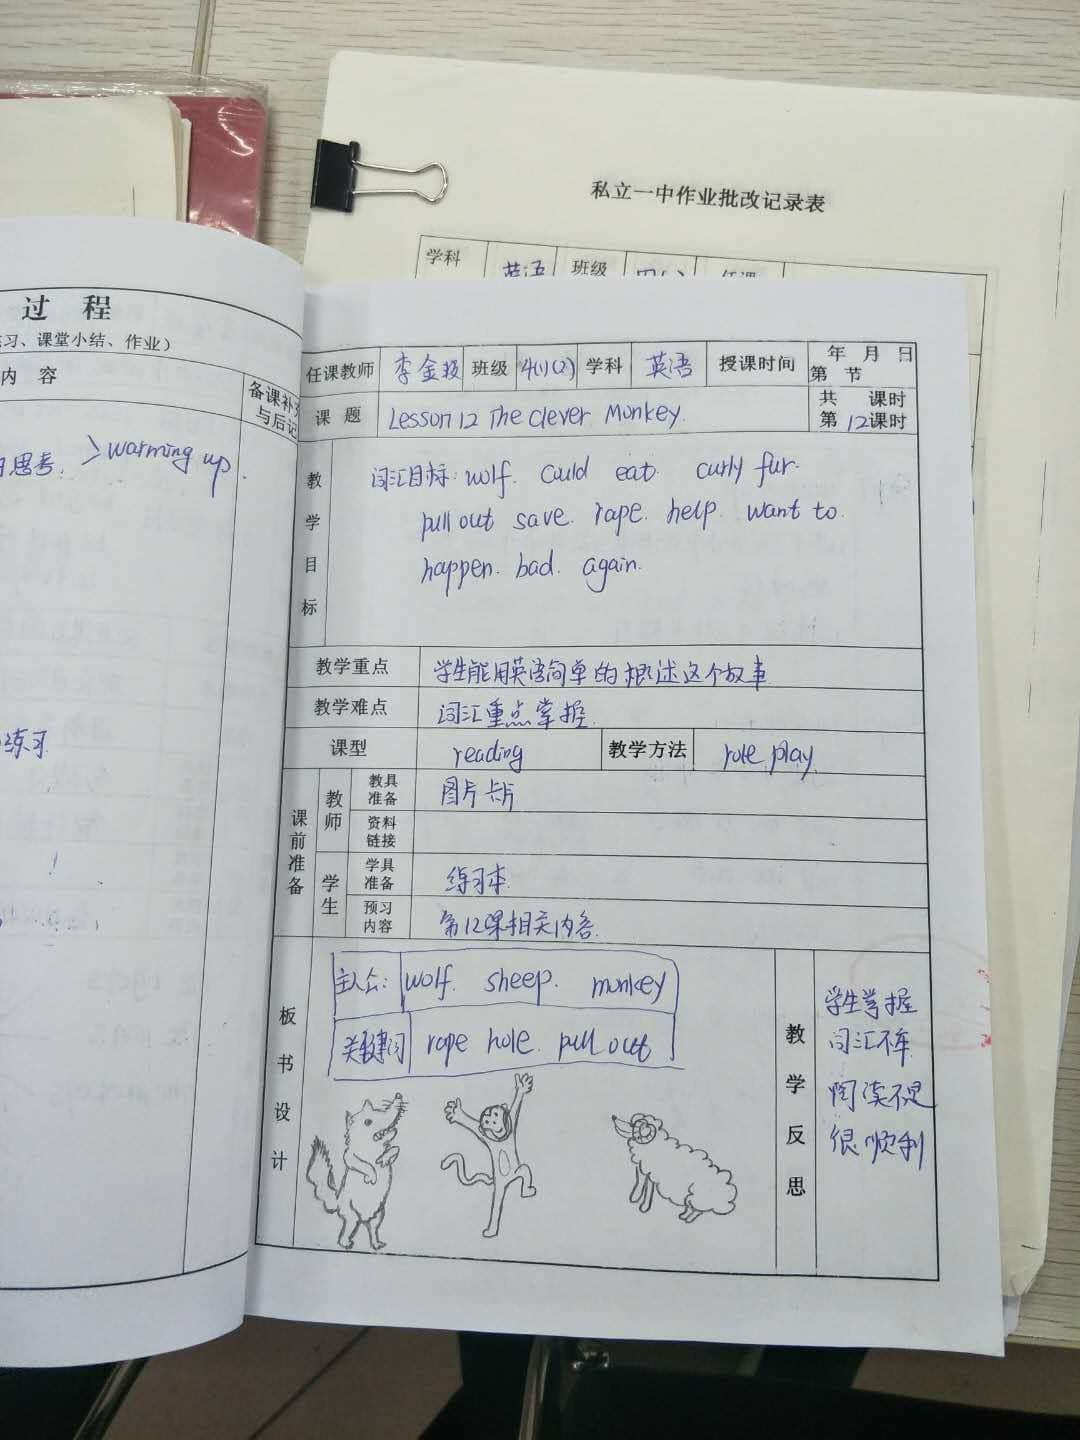 私立一中作业批改记录表
学科 英语 班级
过 程
练习、课堂小结、作业）
内 容
备课补充
与后记
思考. > warming up.
练习
任课教师 李金 班级 4(1)(2) 学科 英语 授课时间 年 月 日
第 节
课 题 Lesson 12 The Clever Monkey. 共 课时
第 12 课时
教学目标
词汇目标: wolf. could eat. curly fur.
pull out save. rape. help. want to.
happen. bad. again.
教学重点 学生能用英语简单的概述这个故事
教学难点 词汇重点掌握.
课型 reading 教学方法 role play.
课前准备
教师 教具准备 图片 卡片
资料链接
学生 学具准备 练习本.
预习内容 第12课相关内容.
板书设计
主人公: wolf. sheep. monkey
关键词 rope hole. pull out
教学反思
学生掌握
词汇不牢.
阅读不是
很顺利